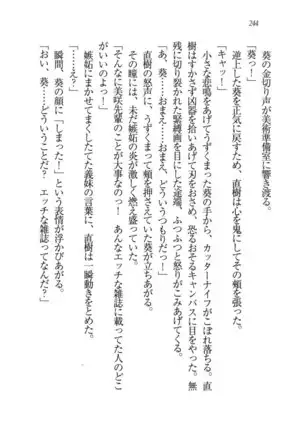 244
「キャーッ!」
葵の金切り声が美術準備室に響き渡る。
「葵っ!」
逆上した葵を正気に戻すため、直樹は心を鬼にしてその頬を張った。
小さな悲鳴をあげてうずくまった葵の手から、カッターナイフがこぼれ落ちる。直
樹はすかさず凶器を拾いあげて刃をおさめ、恐るおそるキャンバスに目をやった。無
残に切り裂かれた緊縛画を目にした途端、ふつふつと怒りがこみあげてくる。
「あ、葵……どういうつもりだっ!」
直樹の怒声に、うずくまって頬を押さえていた葵が立ちあがる。
その瞳には、未だ嫉妬の炎が激しく燃え盛っていた。
「そんなに美咲先輩のことが大事なのっ! あんなエッチな雑誌に載ってた人のどこ
がいいのよっ!」
「……え?」
嫉妬にまかせてまくしたてた義妹の言葉に、直樹は一瞬動きをとめた。
瞬間、葵の顔に「しまった!」という表情が浮かびあがる。
「おい、葵……どういうことだ? エッチな雑誌ってなんだ?」